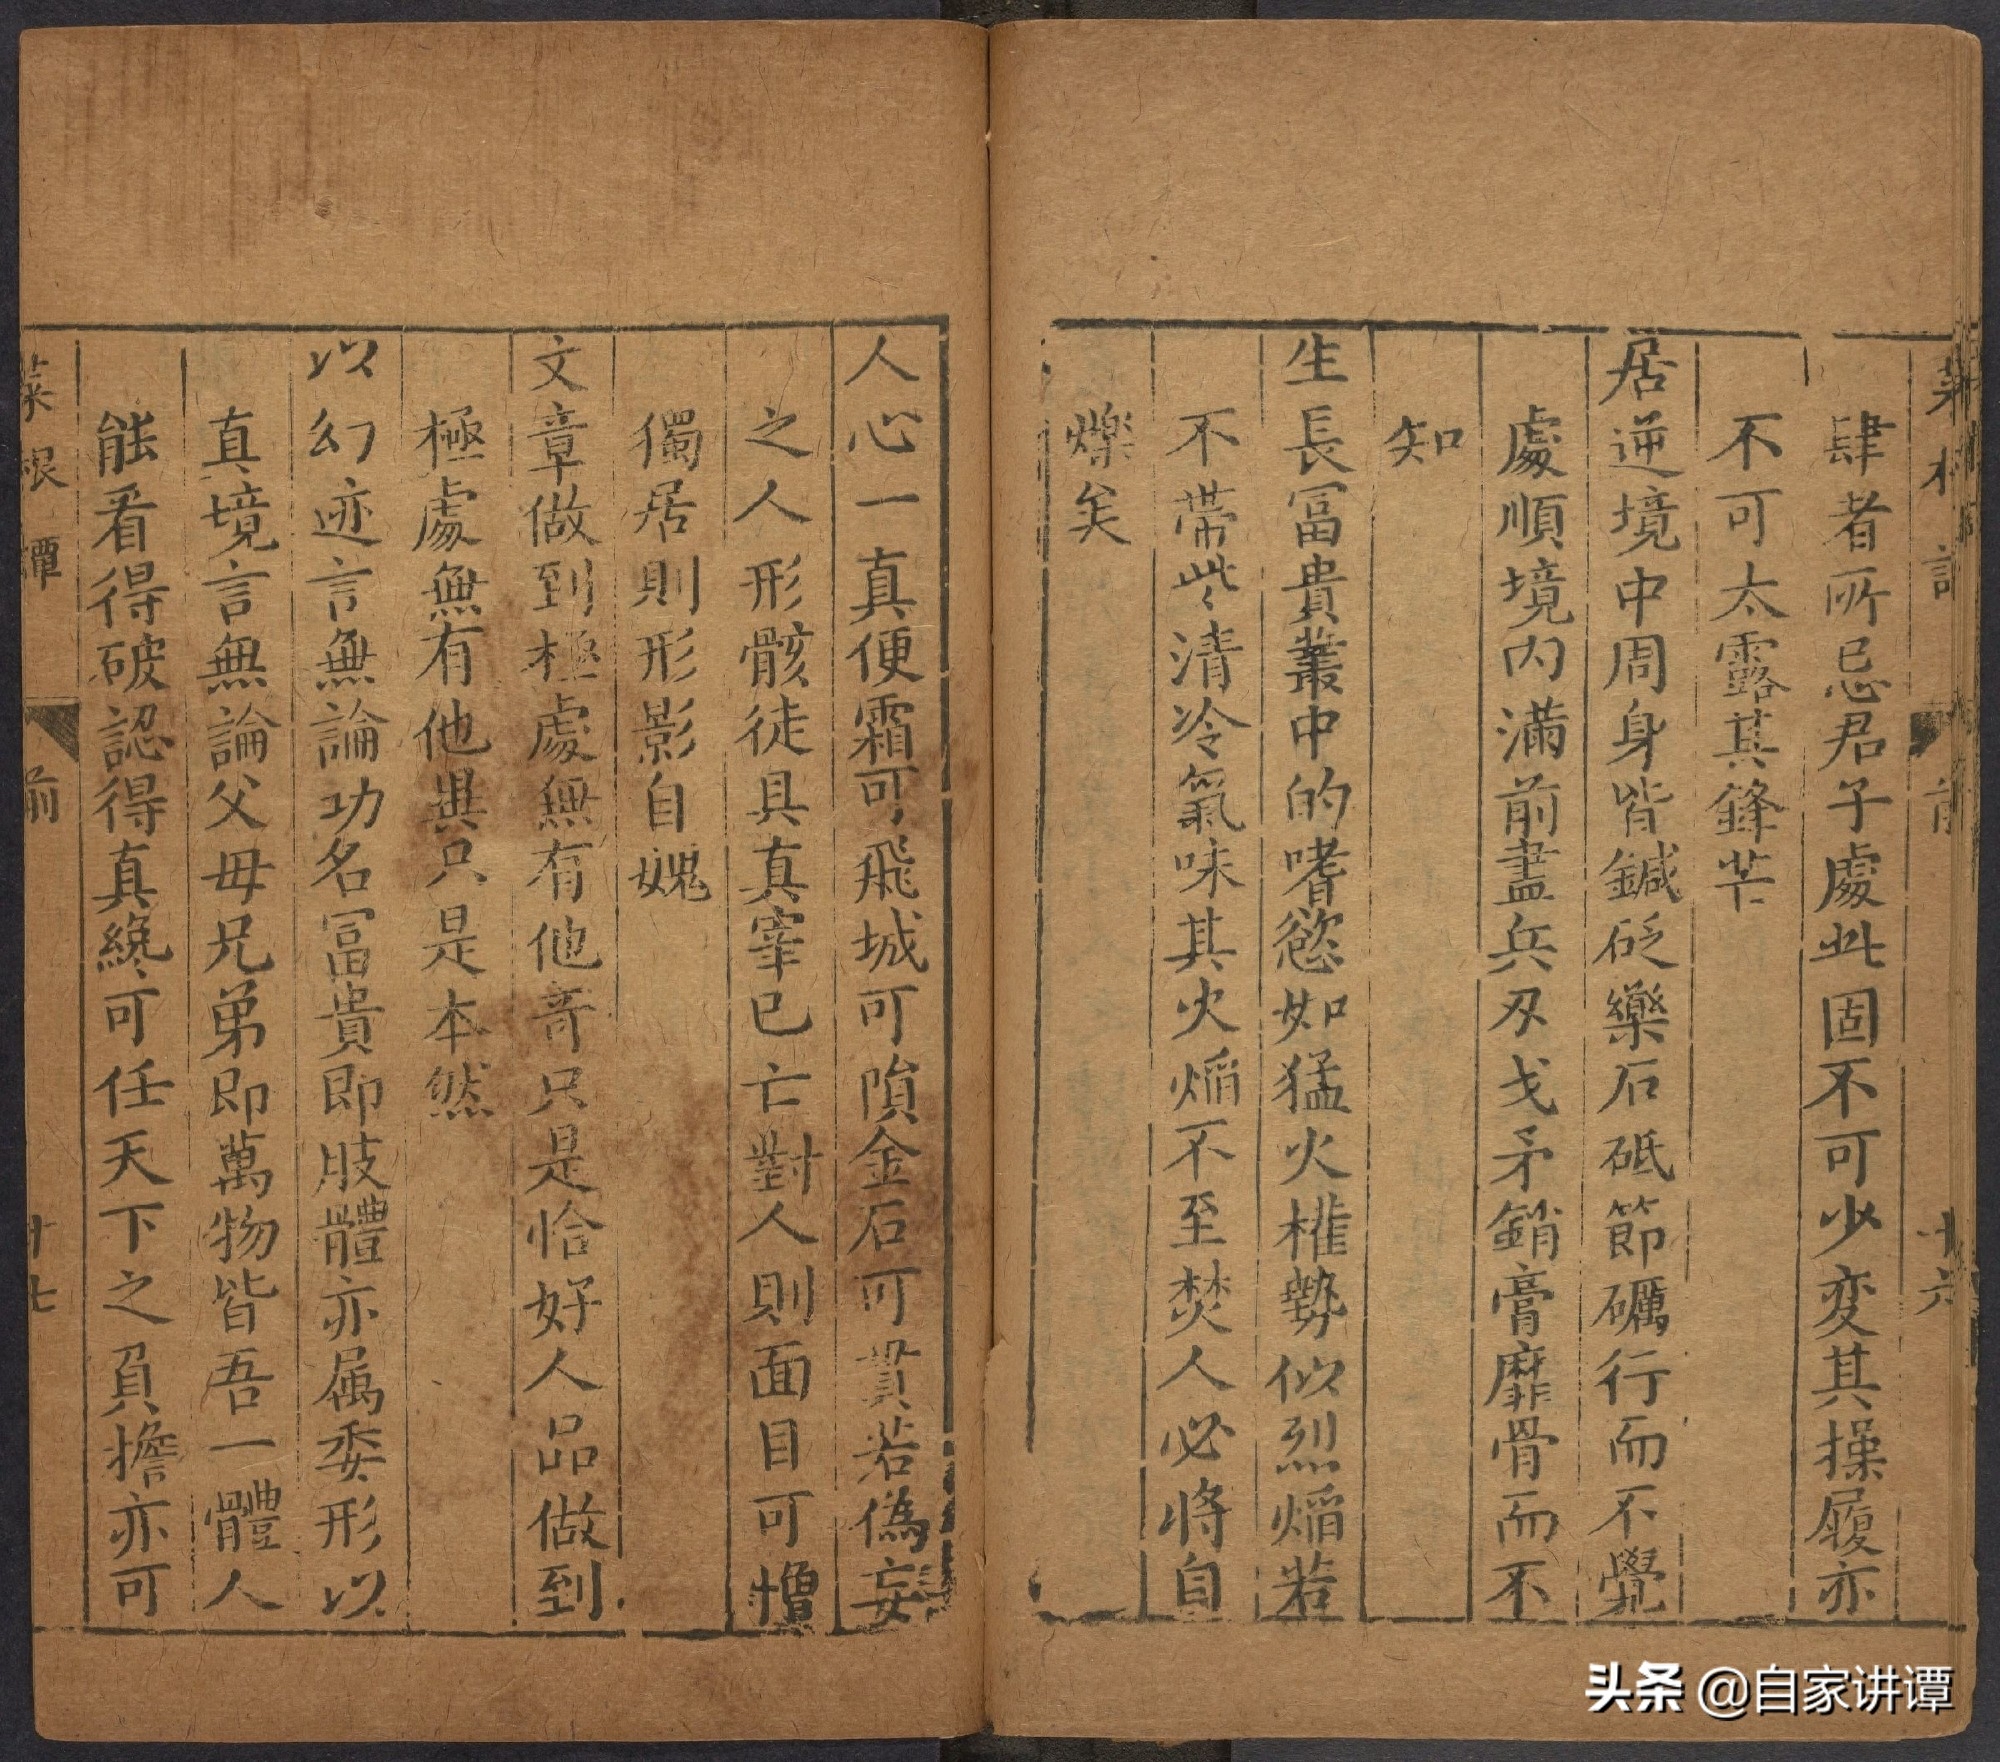 菜根譚 前 十六
肆者所忌君子處此固不可少変其操履亦
不可太露其鋒芒
居逆境中周身皆鍼砭藥石砥節礪行而不覺
處順境内滿前盡兵刃戈矛銷膏靡骨而不
知
生長冨貴叢中的嗜慾如猛火權勢似烈焰若
不帶些清冷氣味其火焰不至焚人必將自
爍矣
人心一真便霜可飛城可隕金石可貫若偽妄
之人形骸徒具真宰已亡對人則面目可憎
獨居則形影自媿
文章做到極處無有他奇只是恰好人品做到
極處無有他異只是本然
以幻迹言無論功名冨貴即肢體亦属委形以
真境言無論父母兄弟即萬物皆吾一體人
能看得破認得真纔可任天下之負擔亦可
菜根譚 前 十七
头条 @自家讲谭